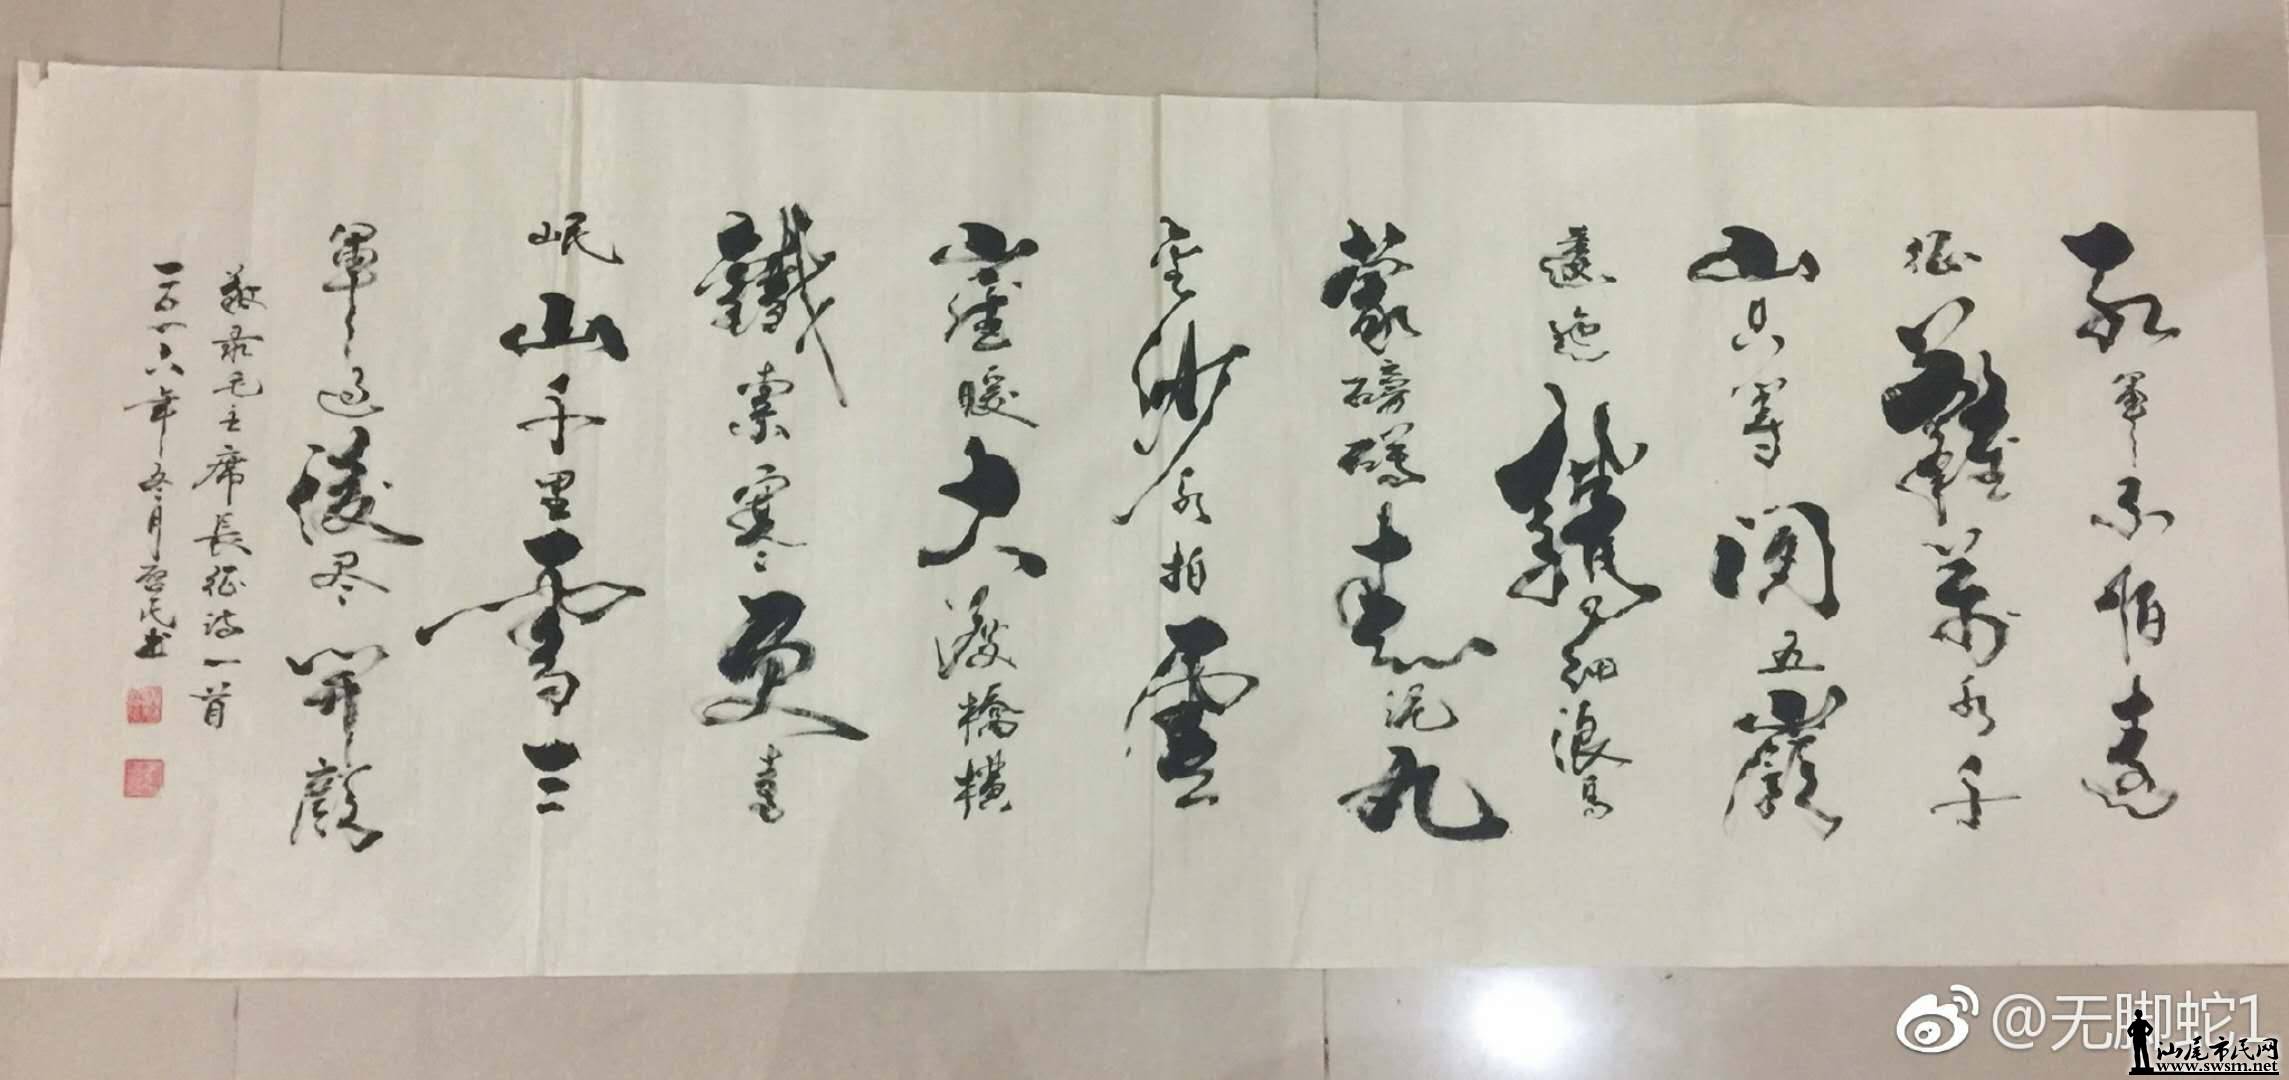 紅軍不怕遠
征難萬水千
山只等閑五嶺
逶迤騰細浪烏
蒙磅礴走泥丸
金沙水拍雲
崖暖大渡橋橫
鐵索寒更喜
岷山千里雪三
軍過後尽開顏
敬录毛主席長征诗一首
二〇一六年冬月启民书
@无脚蛇1
汕尾市民网
www.swsm.net